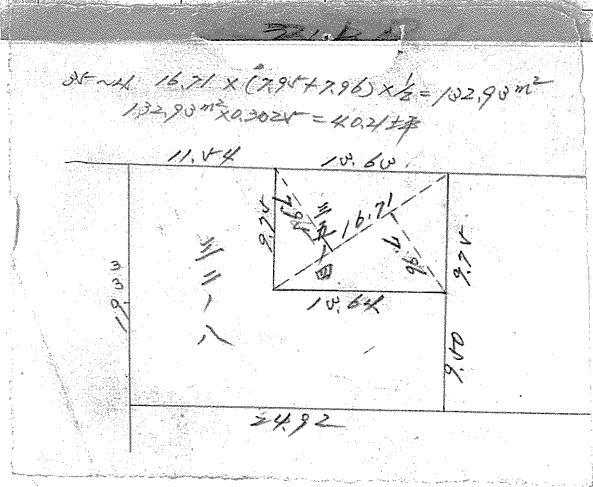 35~4 16.71×(7.95+7.96)×1/2=132.93m²
132.93m²×0.3025=40.21坪
11.54
13.63
9.75
7.95
三五ノ四
16.71
7.96
9.75
三二ノ八
13.64
19.33
9.50
24.92